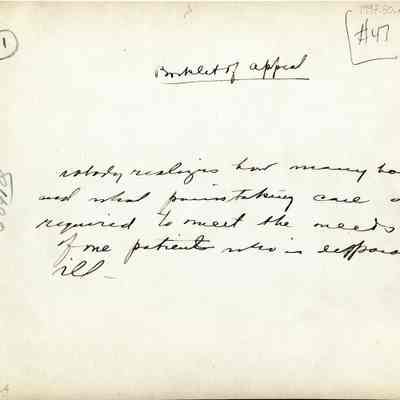 1
#47
Booklet of Appeal
nobody realizes how many
and what painstaking care
required to meet the needs
of one patients who is
ill—